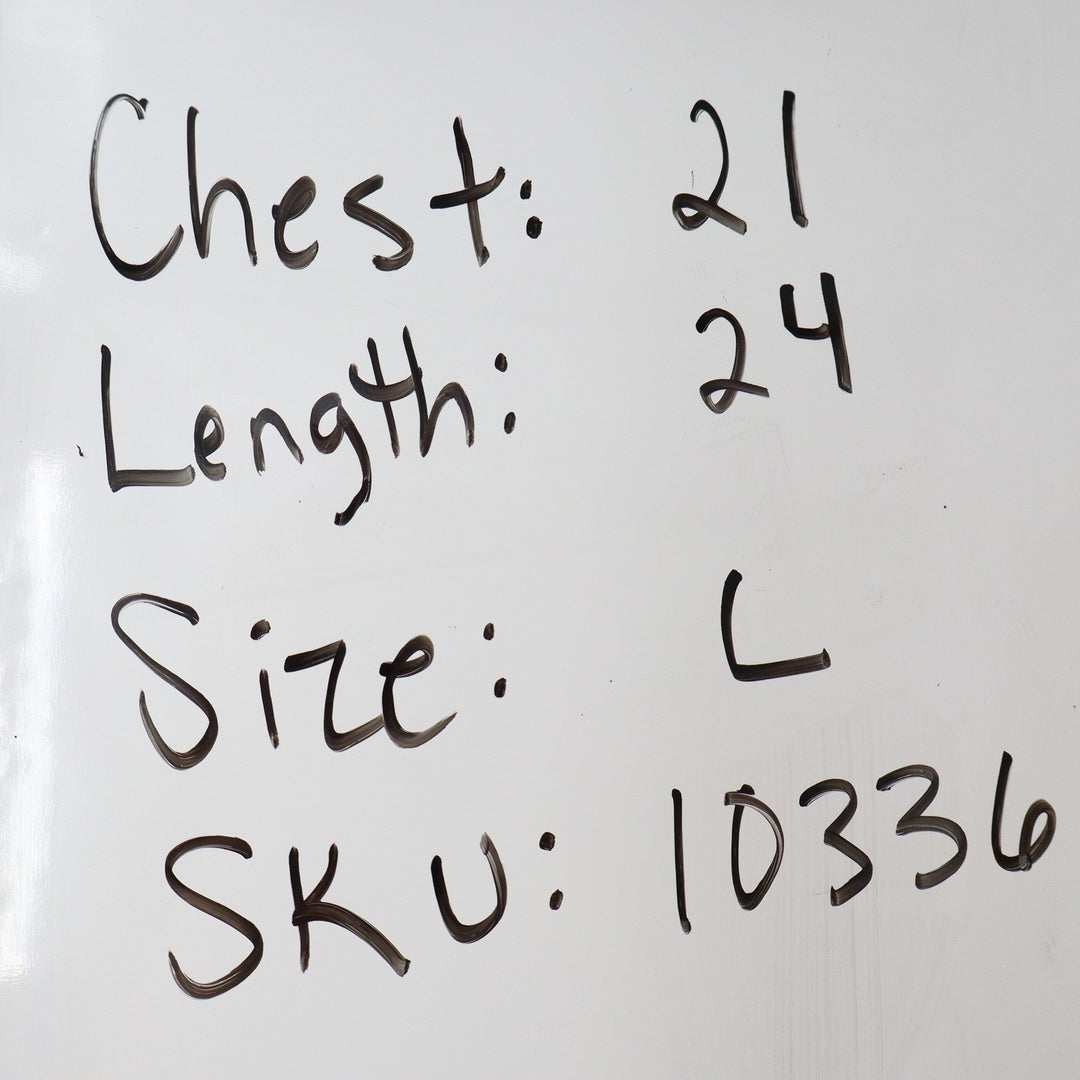 Chest: 21
Length: 24
Size: L
SKU: 10336